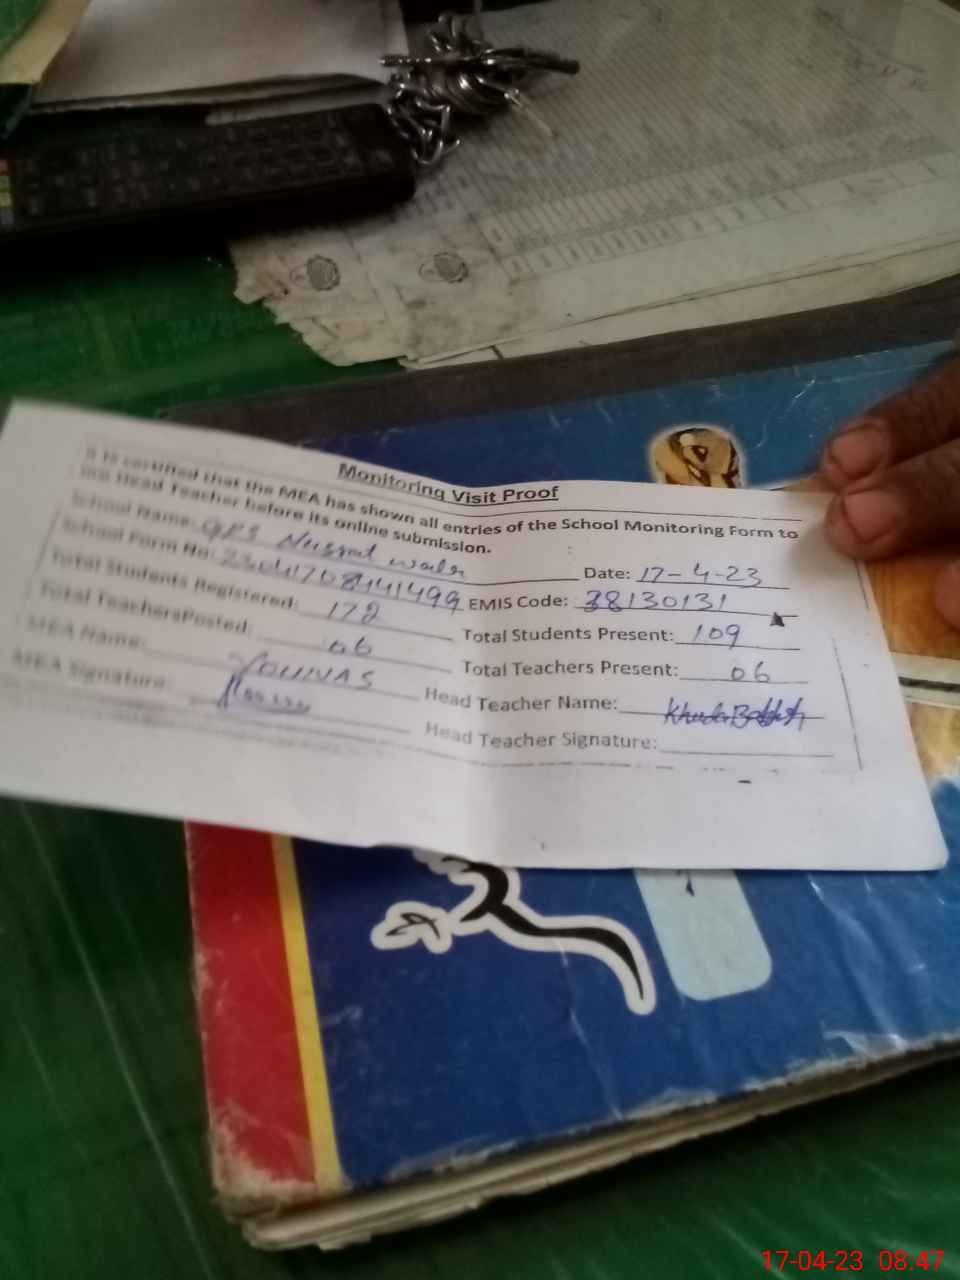 Monitoring Visit Proof
It is certified that the MEA has shown all entries of the School Monitoring Form to
the Head Teacher before its online submission.
School Name: GPS Nusrat wala Date: 17-4-23
School Form No: 23041708441499 EMIS Code: 38130131
Total Students Registered: 172 Total Students Present: 109
Total TeachersPosted: 06 Total Teachers Present: 06
MEA Name: YOUNAS Head Teacher Name: Khuda Bakhsh
MEA Signature: Head Teacher Signature:
17-04-23 08:47